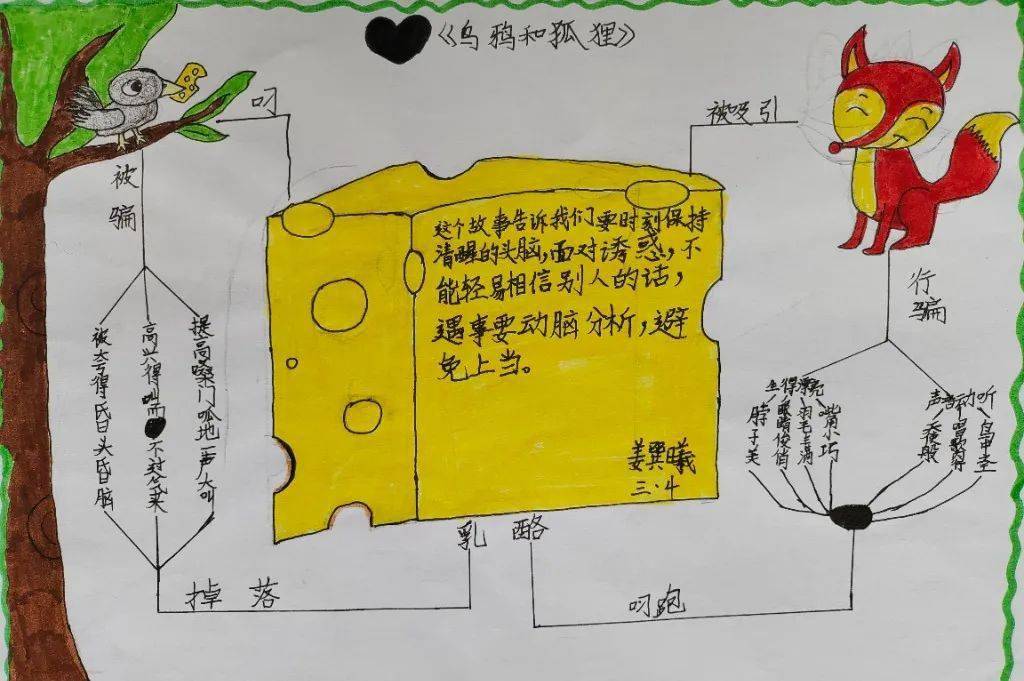 《乌鸦和狐狸》
叼
被吸引
被骗
这个故事告诉我们要时刻保持
清醒的头脑,面对诱惑,不
能轻易相信别人的话,
遇事要动脑分析,避
免上当。
姜巽曦
三·4
行骗
被夸得昏头昏脑
高兴得叫 不过气来
提高嗓门呱地一声大叫
脖子美
眼睛俊俏
羽毛丰满
嘴小巧
声音动听
天使般
唱歌
鸟中
乳酪
掉落
叼跑